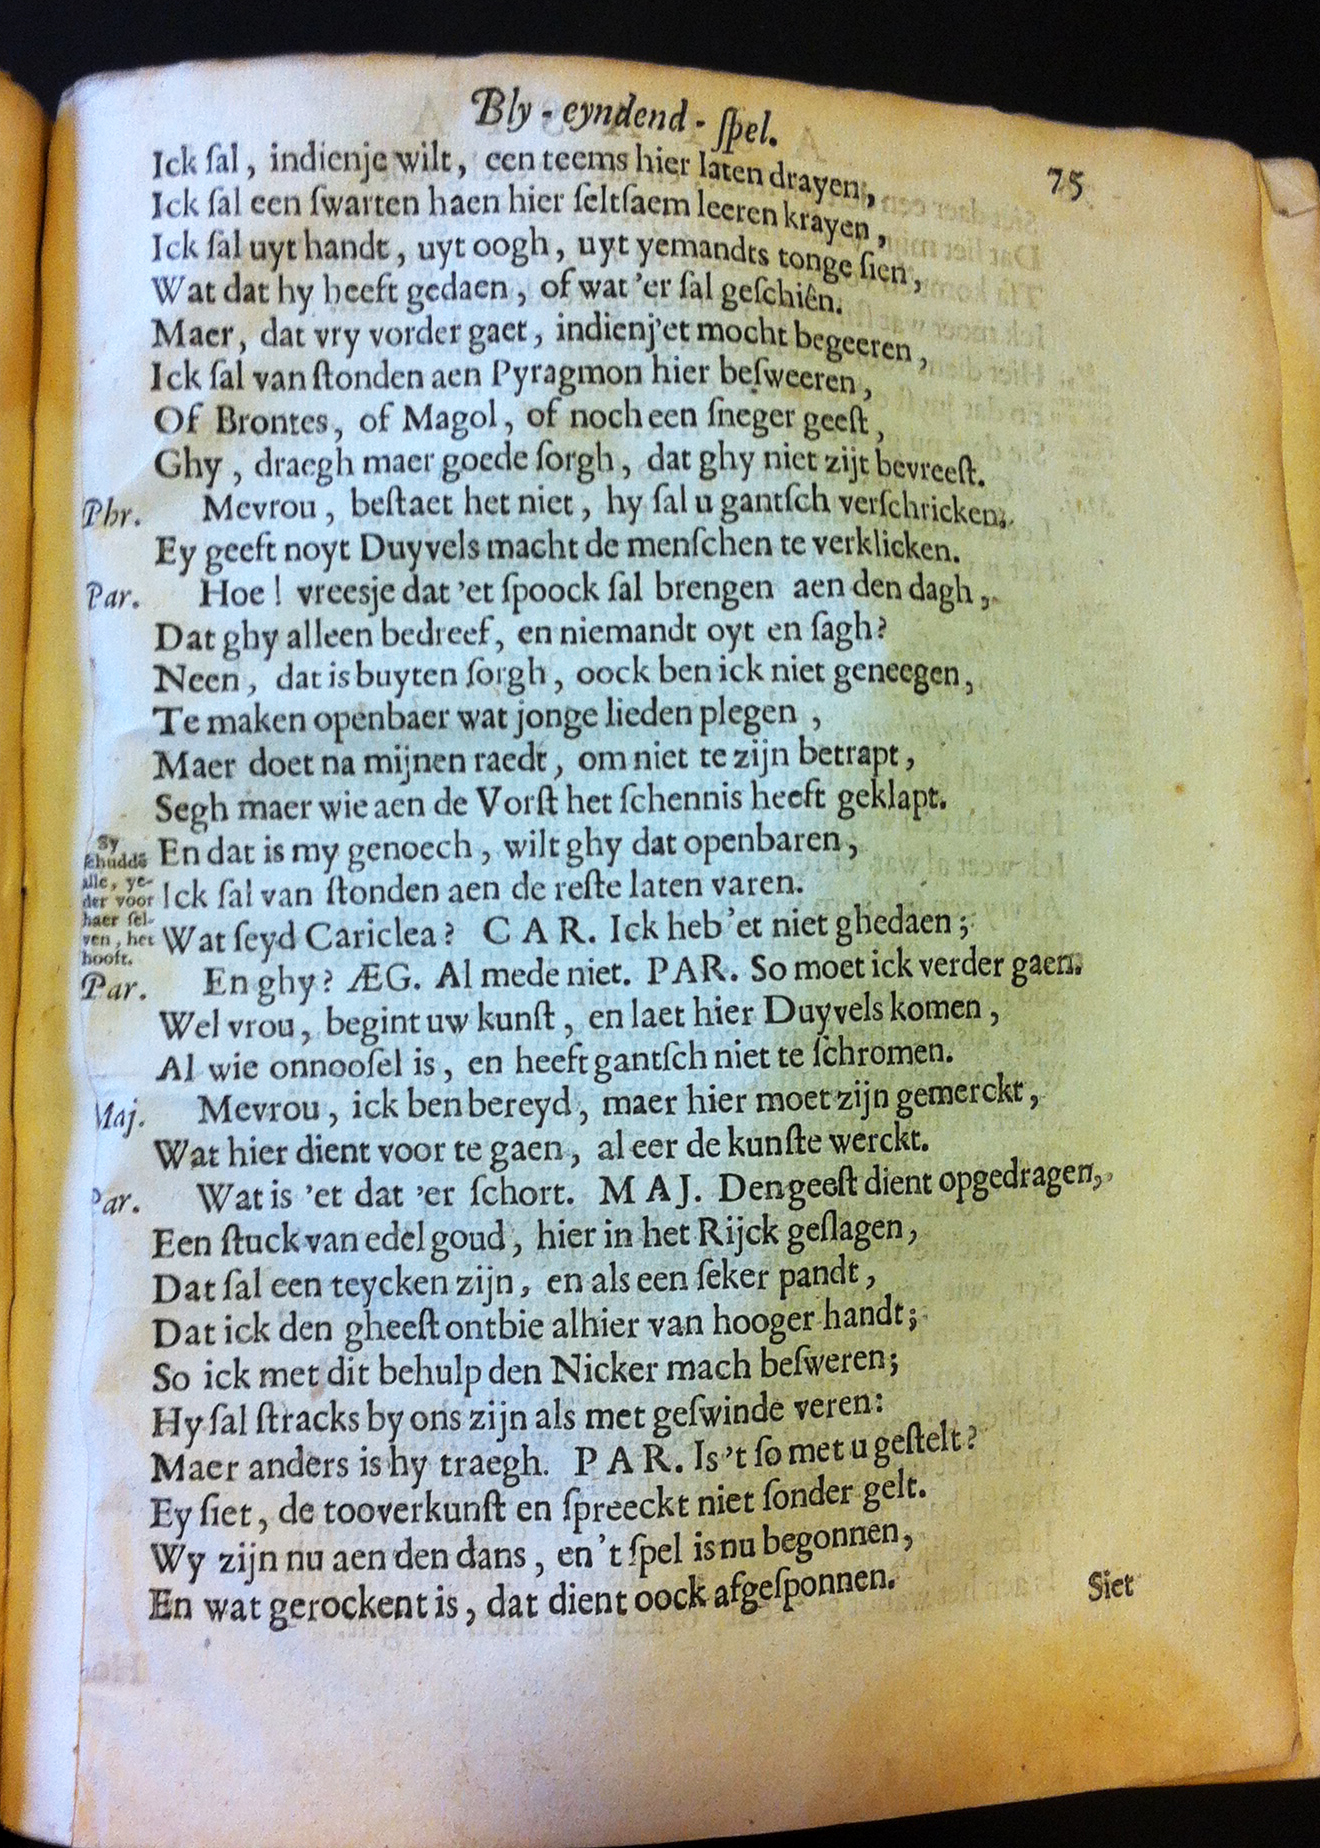 Bly-eyndend-ſpel.
75
Ick ſal, indienje wilt, een teems hier laten drayen,
Ick ſal een ſwarten haen hier ſeltſaem leeren krayen,
Ick ſal uyt handt, uyt oogh, uyt yemandts tonge ſien,
Wat dat hy heeft gedaen, of wat 'er ſal geſchiên.
Maer, dat vry vorder gaet, indienj'et mocht begeeren,
Ick ſal van ſtonden aen Pyragmon hier beſweeren,
Of Brontes, of Magol, of noch een ſneger geeſt,
Ghy, draegh maer goede ſorgh, dat ghy niet zijt bevreeſt.
Phr. Mevrou, beſtaet het niet, hy ſal u gantſch verſchricken,
Ey geeft noyt Duyvels macht de menſchen te verklicken.
Par. Hoe! vreesje dat 'et ſpoock ſal brengen aen den dagh,
Dat ghy alleen bedreef, en niemandt oyt en ſagh?
Neen, dat is buyten ſorgh, oock ben ick niet geneegen,
Te maken openbaer wat jonge lieden plegen,
Maer doet na mijnen raedt, om niet te zijn betrapt,
Segh maer wie aen de Vorſt het ſchennis heeft geklapt.
En dat is my genoech, wilt ghy dat openbaren,
Ick ſal van ſtonden aen de reſte laten varen.
Sy
ſchuddē
alle, ye-
der voor
haer ſel-
ven, het
hooft.
Wat ſeyd Cariclea? CAR. Ick heb 'et niet ghedaen;
Par. En ghy? ÆG. Al mede niet. PAR. So moet ick verder gaen.
Wel vrou, begint uw kunſt, en laet hier Duyvels komen,
Al wie onnooſel is, en heeft gantſch niet te ſchromen.
Maj. Mevrou, ick ben bereyd, maer hier moet zijn gemerckt,
Wat hier dient voor te gaen, al eer de kunſte werckt.
Par. Wat is 'et dat 'er ſchort. MAJ. Den geeſt dient opgedragen,
Een ſtuck van edel goud, hier in het Rijck geſlagen,
Dat ſal een teycken zijn, en als een ſeker pandt,
Dat ick den gheeſt ontbie alhier van hooger handt;
So ick met dit behulp den Nicker mach beſweren;
Hy ſal ſtracks by ons zijn als met geſwinde veren:
Maer anders is hy traegh. PAR. Is 't ſo met u geſtelt?
Ey ſiet, de tooverkunſt en ſpreeckt niet ſonder gelt.
Wy zijn nu aen den dans, en 't ſpel is nu begonnen,
En wat gerockent is, dat dient oock afgeſponnen.
Siet